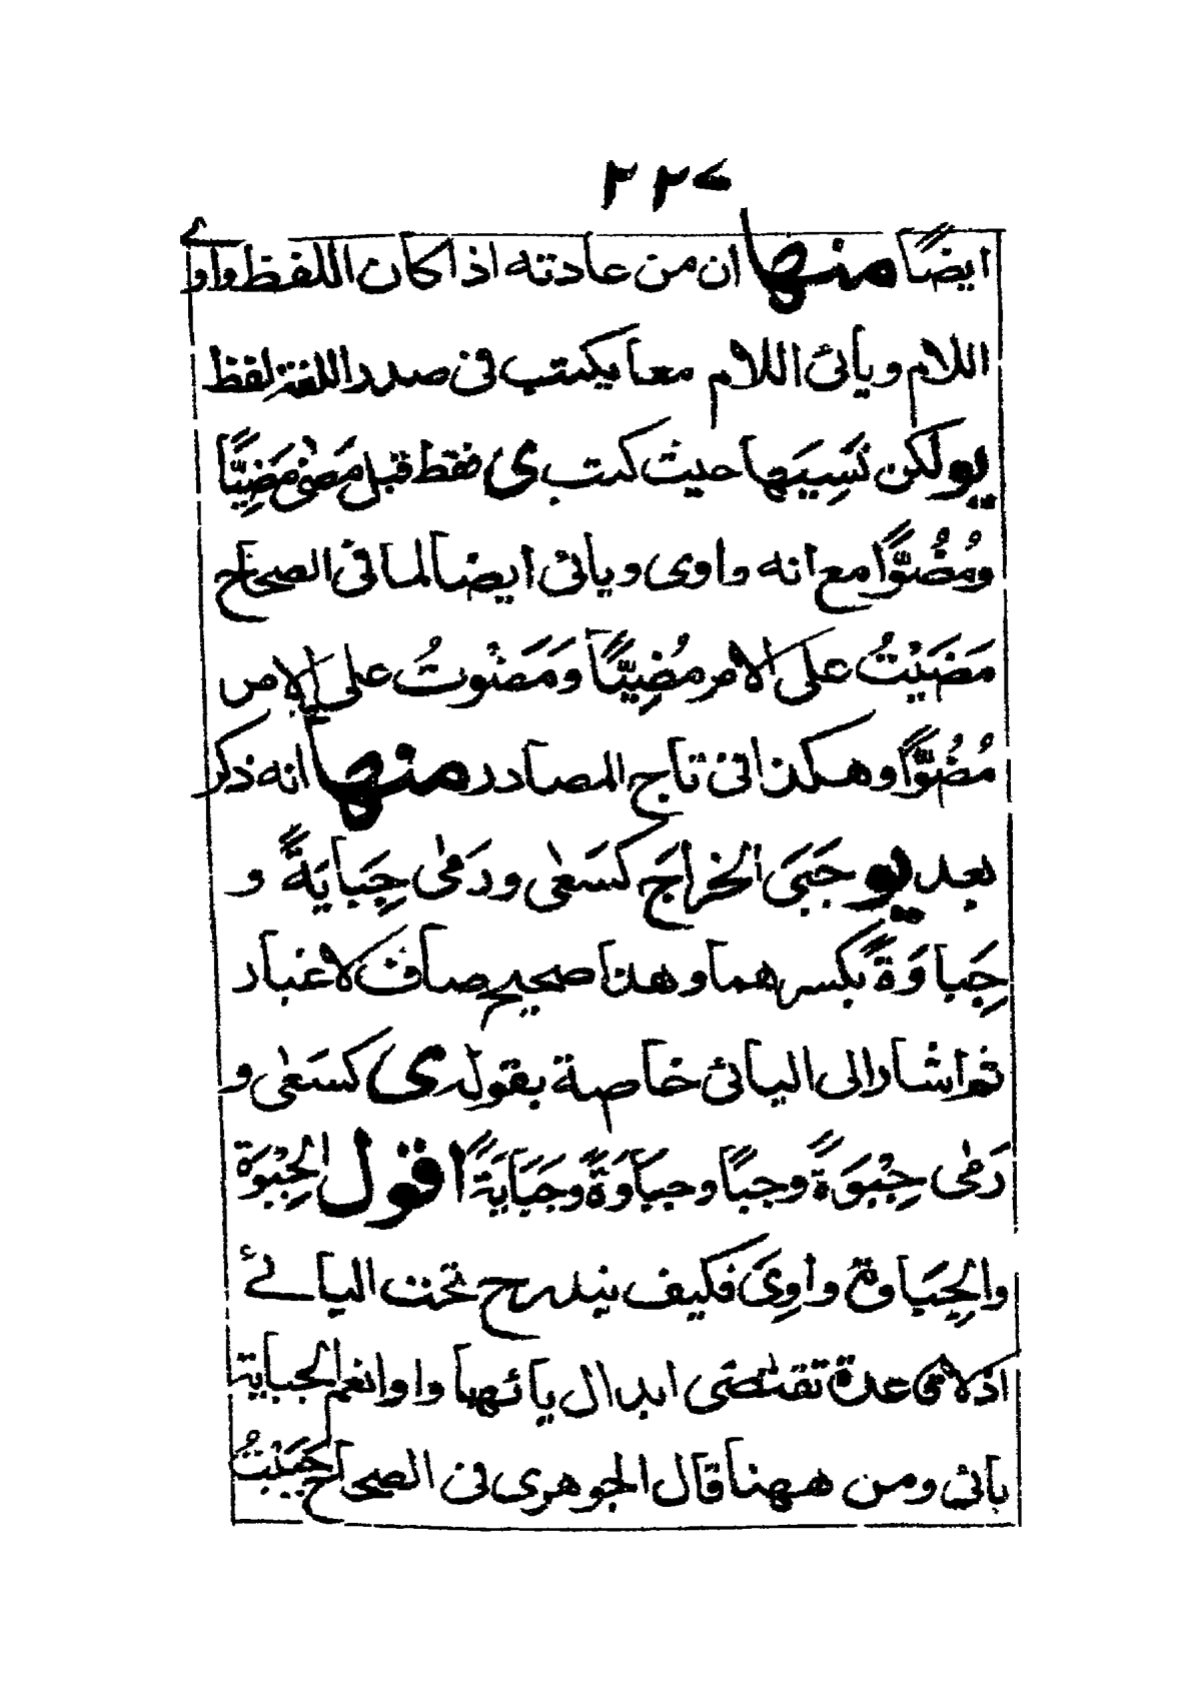 ٢٢٧
ايضًا منها ان من عادته اذا كان اللفظ واوى
اللام ويائى اللام معا يكتب فى صدر اللغة لفظ
يو لكن نَسِيَها حيث كتب ى فقط قبل مَضٰى مَضِيًّا
ومُضُوًّا مع انه واوى ويائى ايضا لما فى الصحاح
مَضَيْتُ على الامر مُضِيًّا وَمَضَوتُ على الامر
مُضُوًّا وهكذا فى تاج المصادر منها انه ذكر
بعد يو جَبَىَ الخراجَ كَسَعٰى ورَمٰى جِبايَةً و
جِباوَةً بكسرهما وهذا صحيح صاف لا غبار
ثم اشار الى اليائى خاصة بقوله ى كسَعٰى و
رَمٰى جِبْوَةً وجبًا وجباوَةً وجَبَايَةً اقول الجِبْوَة
والجِبَاوة واوِىّ فكيف يندرج تحت اليائے
اذ لا قاعدة تقتضى ابدال يائها واوا نعم الجباية
يائى ومن ههنا قال الجوهرى فى الصحاح جَبَيْتُ